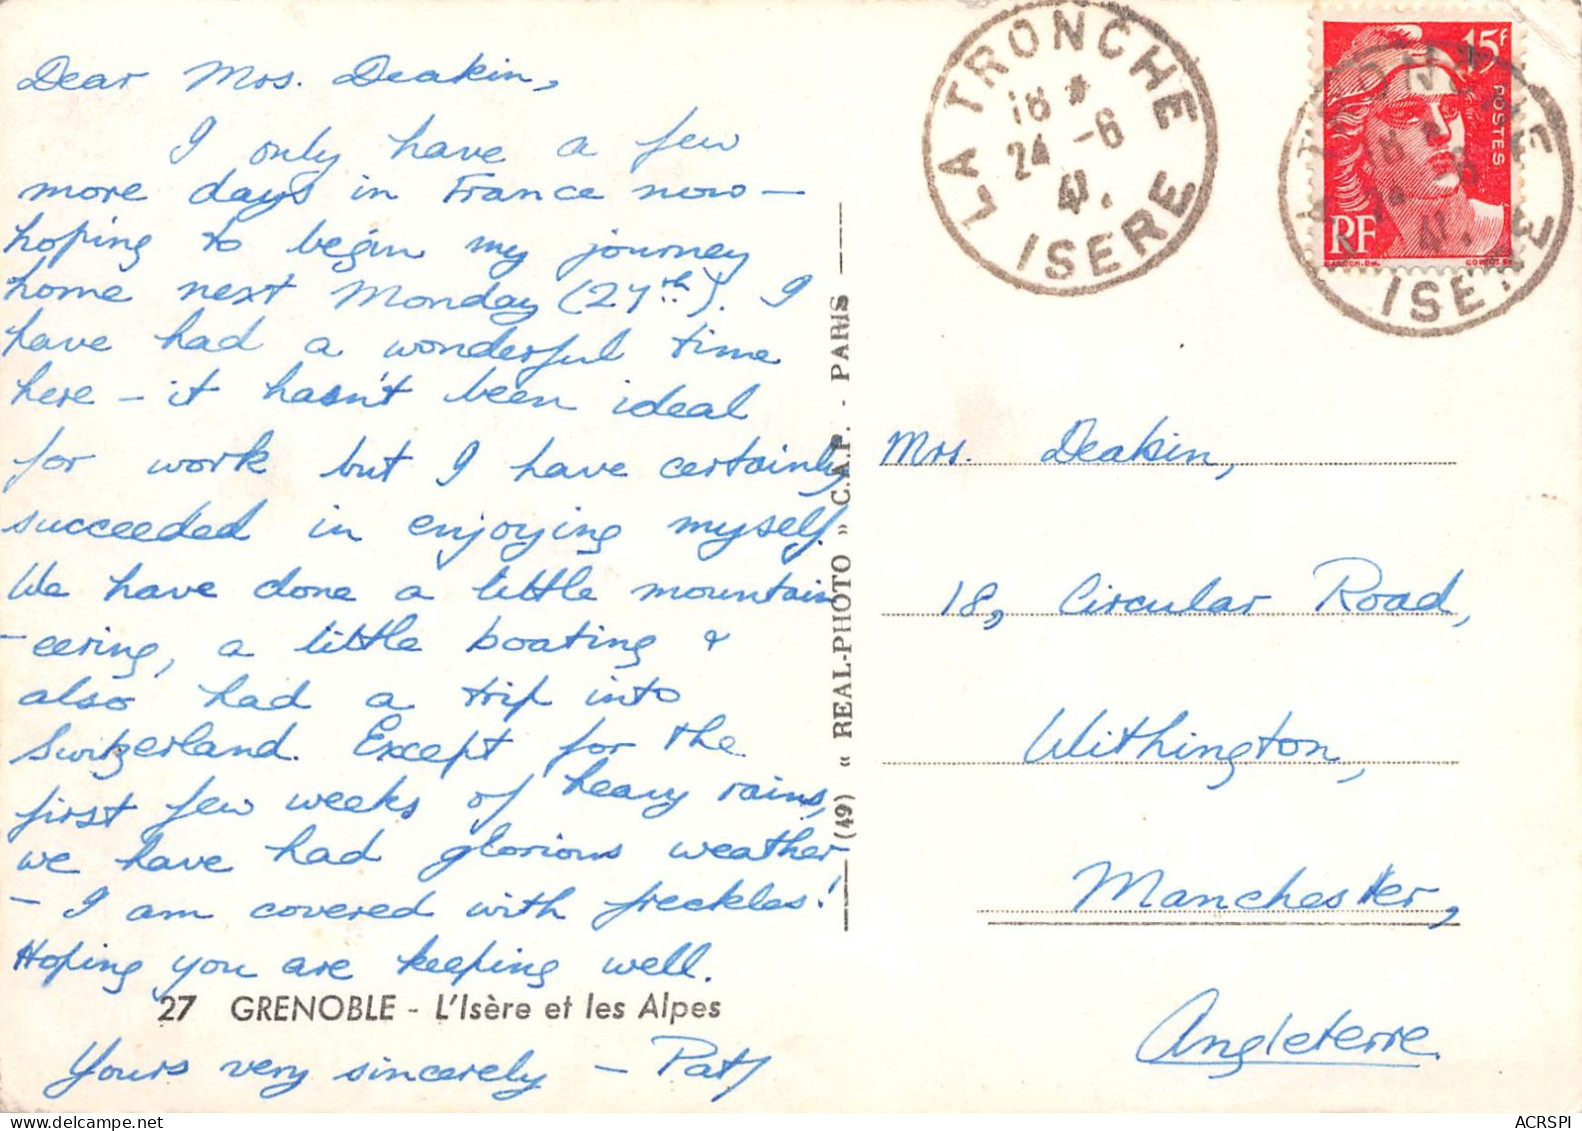 Dear Mrs. Deakin,
I only have a few
more days in France now —
hoping to begin my journey
home next Monday (27th). I
have had a wonderful time
here – it hasn't been ideal
for work but I have certainly
succeeded in enjoying myself.
We have done a little mountain
-eering, a little boating &
also had a trip into
Switzerland. Except for the
first few weeks of heavy rains,
we have had glorious weather
– I am covered with freckles!
Hoping you are keeping well.
27 GRENOBLE - L'Isère et les Alpes
Yours very sincerely – Paty
(49) « REAL-PHOTO » C.A.P. - PARIS
LA TRONCHE
18 *
24 -6
ISERE
15f
POSTES
RF
18
-6
ISERE
Mrs. Deakin,
18, Circular Road,
Withington,
Manchester,
Angleterre
ACRSPI